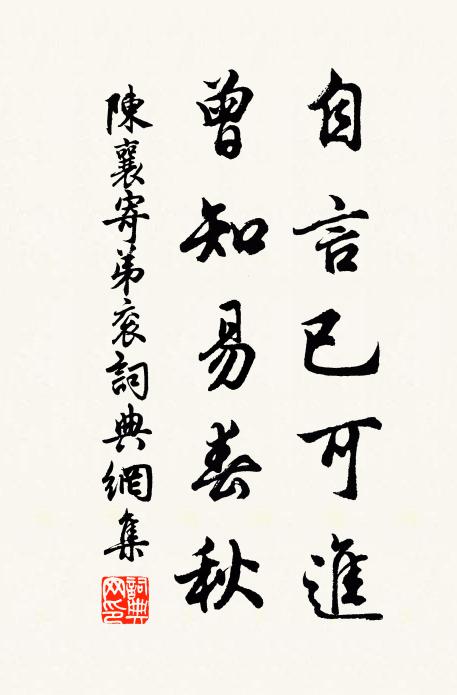 自言已可進
曾知易春秋
陳襄寄弟袞詞典網集
詞典網印